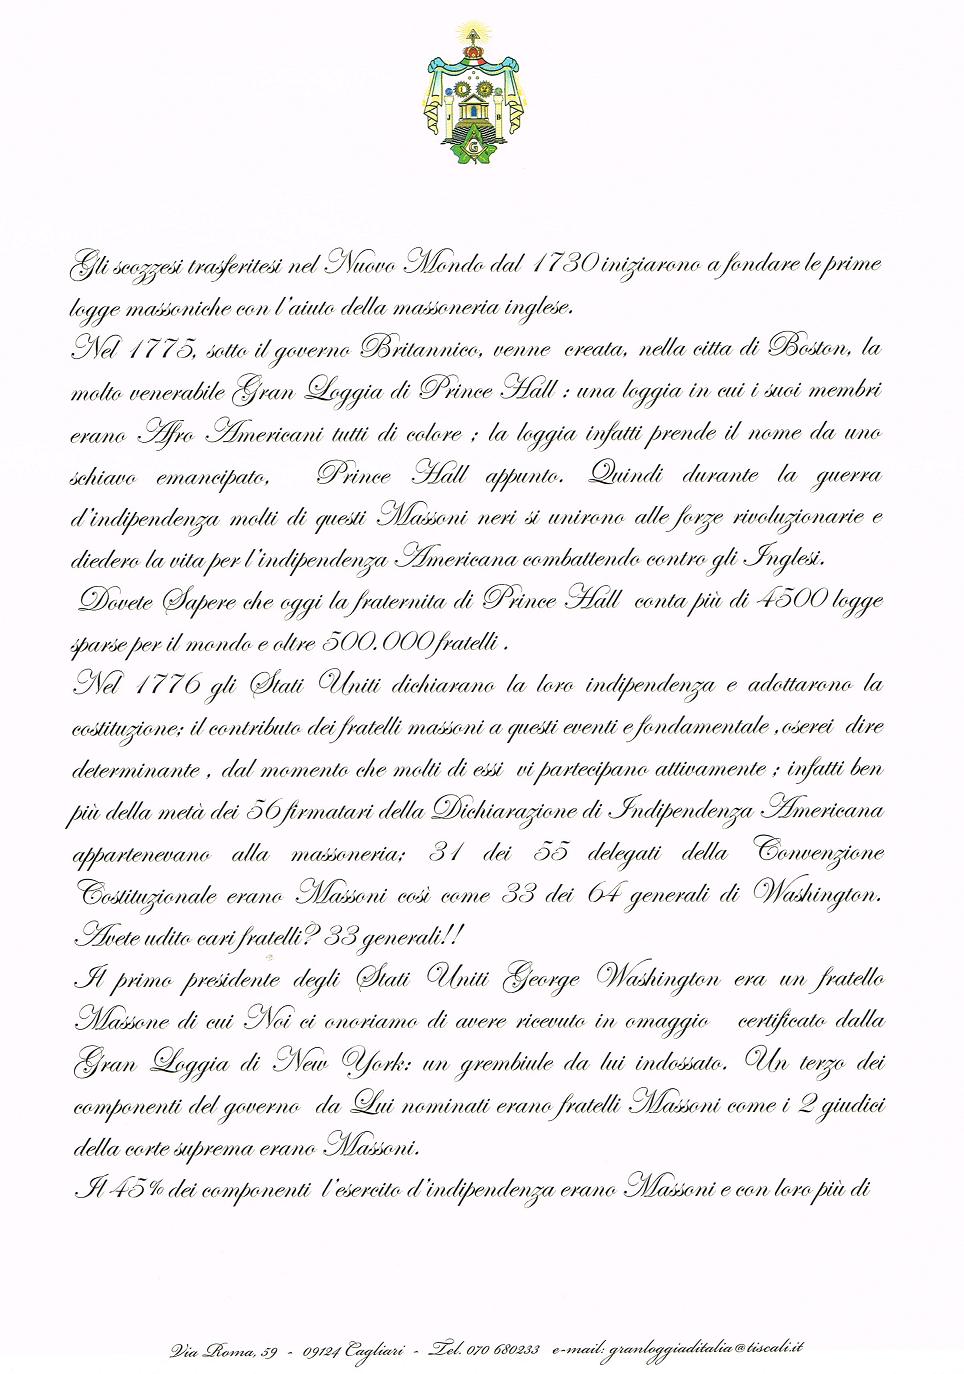 J B
G
Gli scozzesi trasferitesi nel Nuovo Mondo dal 1730 iniziarono a fondare le prime
logge massoniche con l'aiuto della massoneria inglese.
Nel 1775, sotto il governo Britannico, venne creata, nella citta di Boston, la
molto venerabile Gran Loggia di Prince Hall : una loggia in cui i suoi membri
erano Afro Americani tutti di colore ; la loggia infatti prende il nome da uno
schiavo emancipato, Prince Hall appunto. Quindi durante la guerra
d'indipendenza molti di questi Massoni neri si unirono alle forze rivoluzionarie e
diedero la vita per l'indipendenza Americana combattendo contro gli Inglesi.
Dovete Sapere che oggi la fraternita di Prince Hall conta più di 4500 logge
sparse per il mondo e oltre 500.000 fratelli .
Nel 1776 gli Stati Uniti dichiarano la loro indipendenza e adottarono la
costituzione; il contributo dei fratelli massoni a questi eventi e fondamentale ,oserei dire
determinante , dal momento che molti di essi vi partecipano attivamente ; infatti ben
più della metà dei 56 firmatari della Dichiarazione di Indipendenza Americana
appartenevano alla massoneria; 31 dei 55 delegati della Convenzione
Costituzionale erano Massoni così come 33 dei 64 generali di Washington.
Avete udito cari fratelli? 33 generali!!
Il primo presidente degli Stati Uniti George Washington era un fratello
Massone di cui Noi ci onoriamo di avere ricevuto in omaggio certificato dalla
Gran Loggia di New York: un grembiule da lui indossato. Un terzo dei
componenti del governo da Lui nominati erano fratelli Massoni come i 2 giudici
della corte suprema erano Massoni.
Il 45% dei componenti l'esercito d'indipendenza erano Massoni e con loro più di
Via Roma, 59 - 09124 Cagliari - Tel. 070 680233 e-mail: granloggiaditalia@tiscali.it